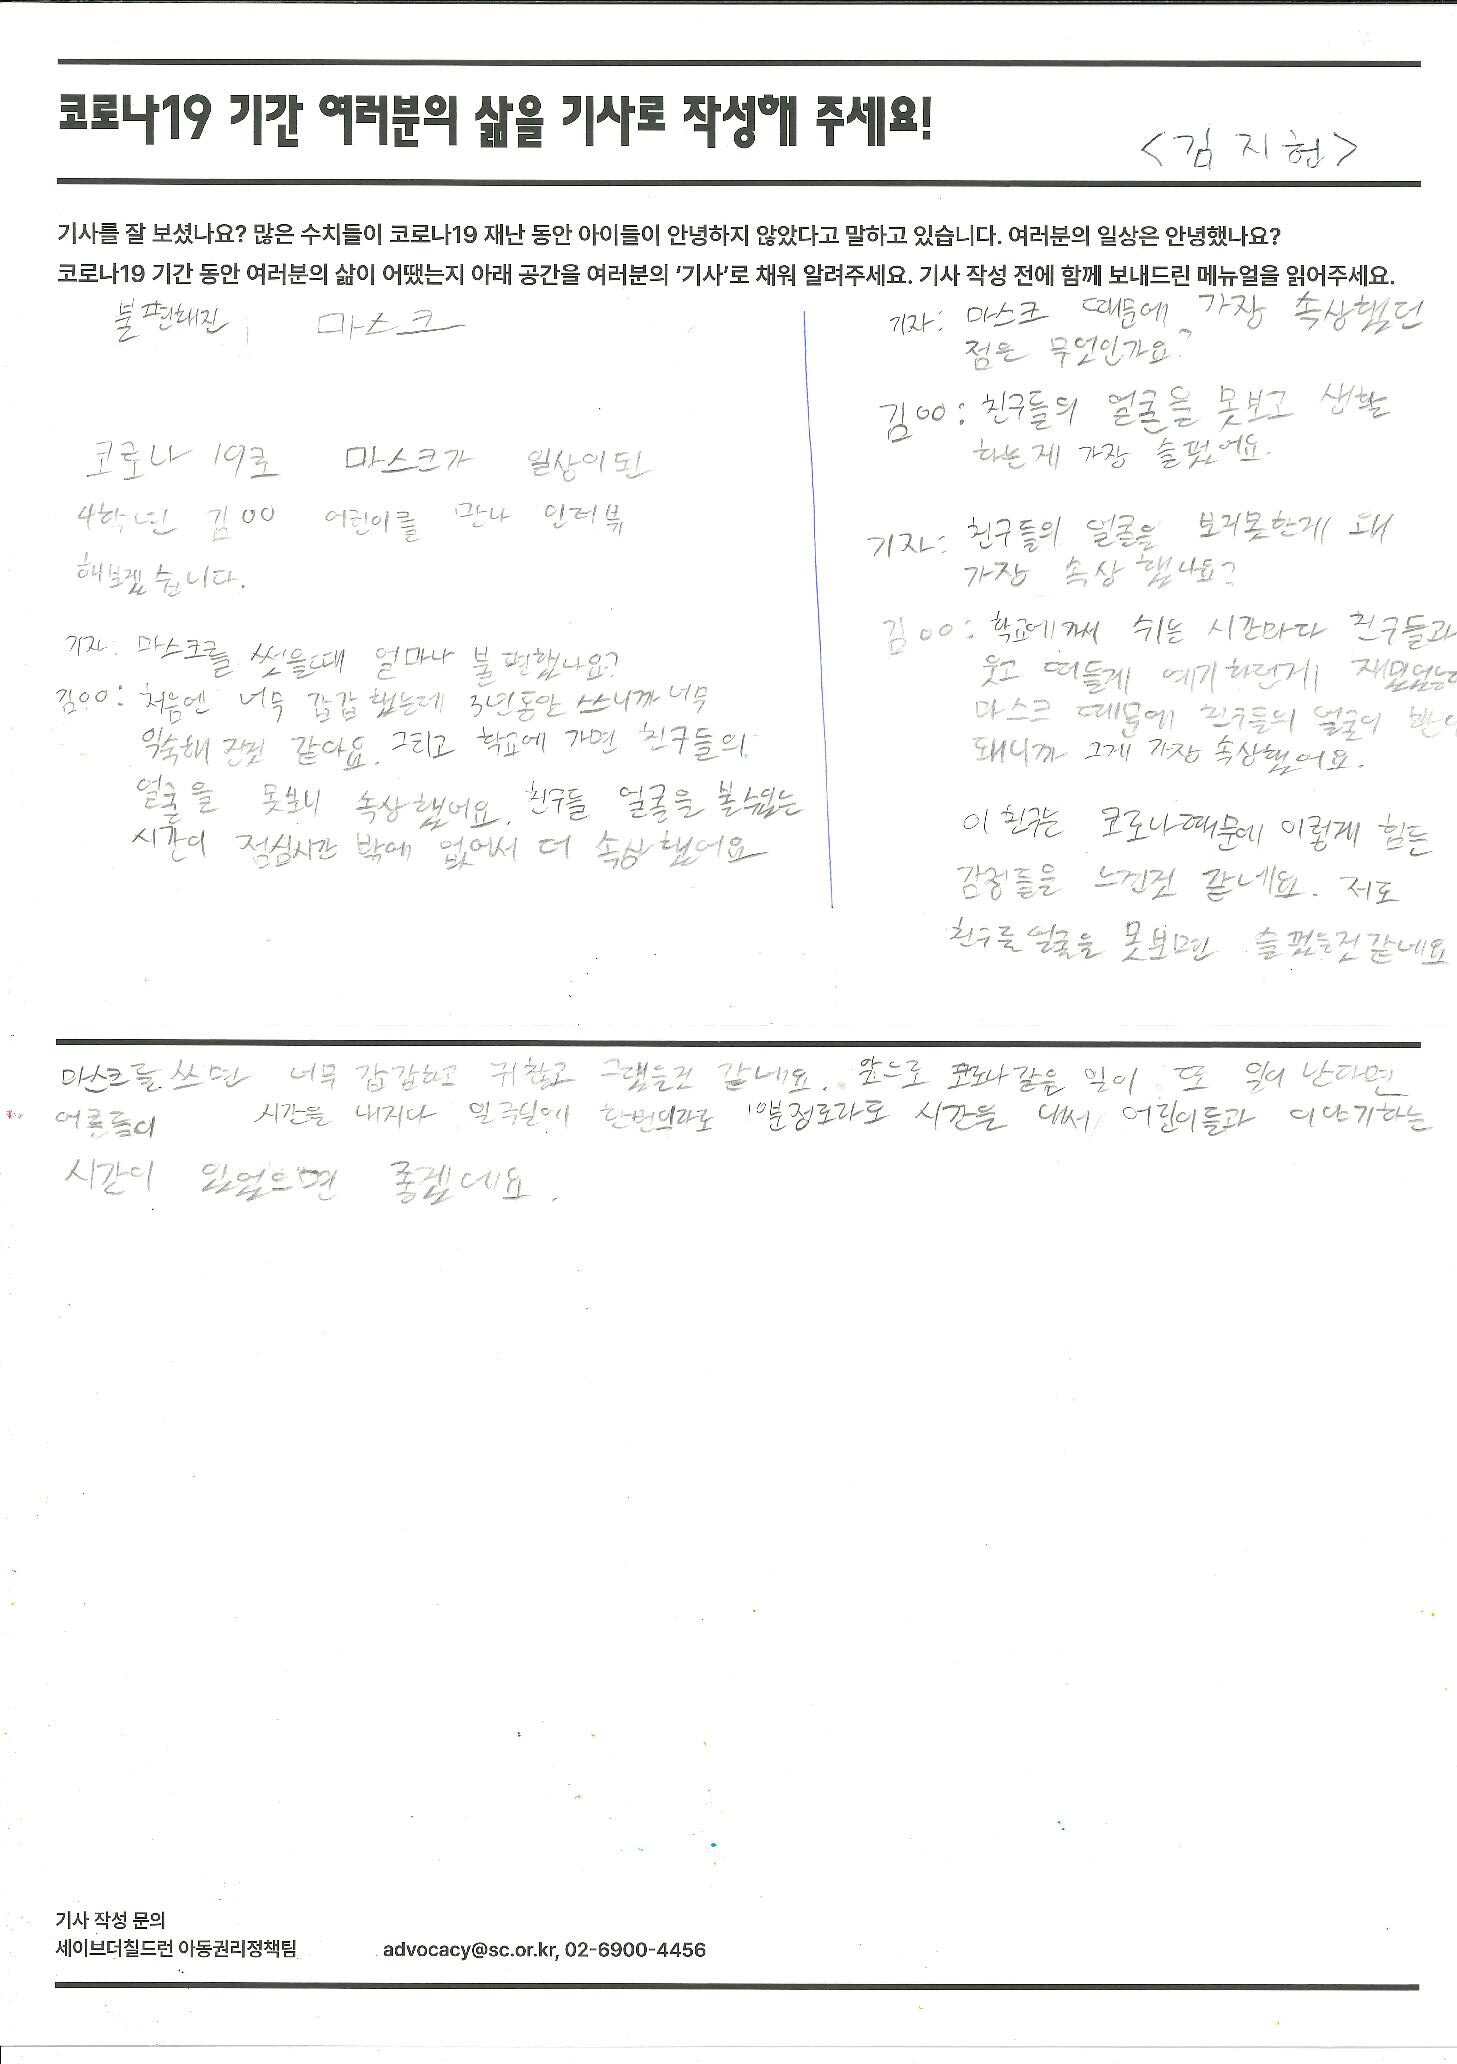 코로나19 기간 여러분의 삶을 기사로 작성해 주세요!
<김지현>
기사를 잘 보셨나요? 많은 수치들이 코로나19 재난 동안 아이들이 안녕하지 않았다고 말하고 있습니다. 여러분의 일상은 안녕했나요?
코로나19 기간 동안 여러분의 삶이 어땠는지 아래 공간을 여러분의 ‘기사’로 채워 알려주세요. 기사 작성 전에 함께 보내드린 메뉴얼을 읽어주세요.
불편해진 마스크
코로나 19로 마스크가 일상이된
4학년 김OO 어린이를 만나 인터뷰
해보겠습니다.
기자: 마스크를 썻을때 얼마나 불편했나요?
김OO: 처음엔 너무 갑갑했는데 3년동안 쓰니까 너무
익숙해 진것 같아요. 그리고 학교에 가면 친구들의
얼굴을 못보니 속상했어요. 친구들 얼굴을 볼수있는
시간이 점심시간 밖에 없어서 더 속상했어요
기자: 마스크 때문에 가장 속상했던
점은 무엇인가요?
김OO: 친구들의 얼굴을 못보고 생활
하는게 가장 슬펐어요.
기자: 친구들의 얼굴을 보지못한게 왜
가장 속상했나요?
김OO: 학교에가서 쉬는 시간마다 친구들과
웃고 떠들게 예기하던게 재밌었는데
마스크 때문에 친구들의 얼굴이
돼니까 그게 가장 속상했어요.
이 친구는 코로나때문에 이렇게 힘든
감정들을 느낀것 같네요. 저도
친구들얼굴을 못보면 슬펐을것같네요
마스크를 쓰면 너무 갑갑하고 귀찮고 그랬을것 같네요. 앞으로 코로나같은 일이 또 일어 난다면
어른들이 시간을 내지다 일주일에 한번이라도 10분정로라도 시간을 내써 어린이들과 이야기하는
시간이 있었으면 좋겠네요.
기사 작성 문의
세이브더칠드런 아동권리정책팀 advocacy@sc.or.kr, 02-6900-4456